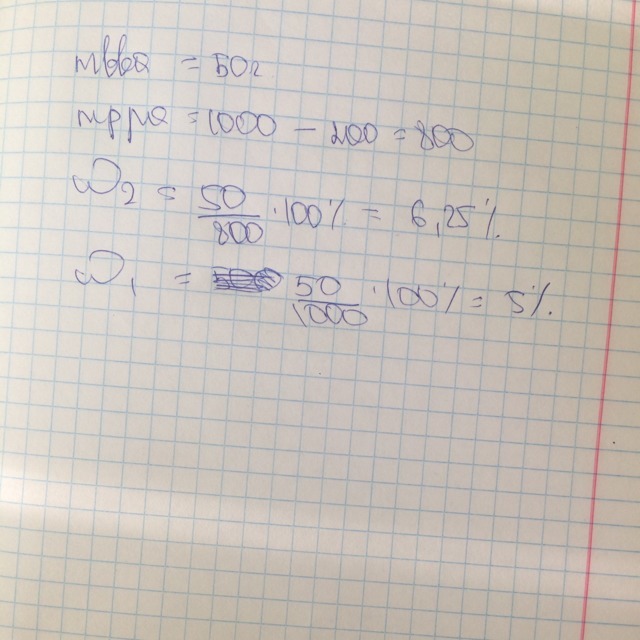 mв-ва = 50г
mр-ра = 1000 - 200 = 800
ω₂ = 50/800 · 100% = 6,25%.
ω₁ = 50/1000 · 100% = 5%.